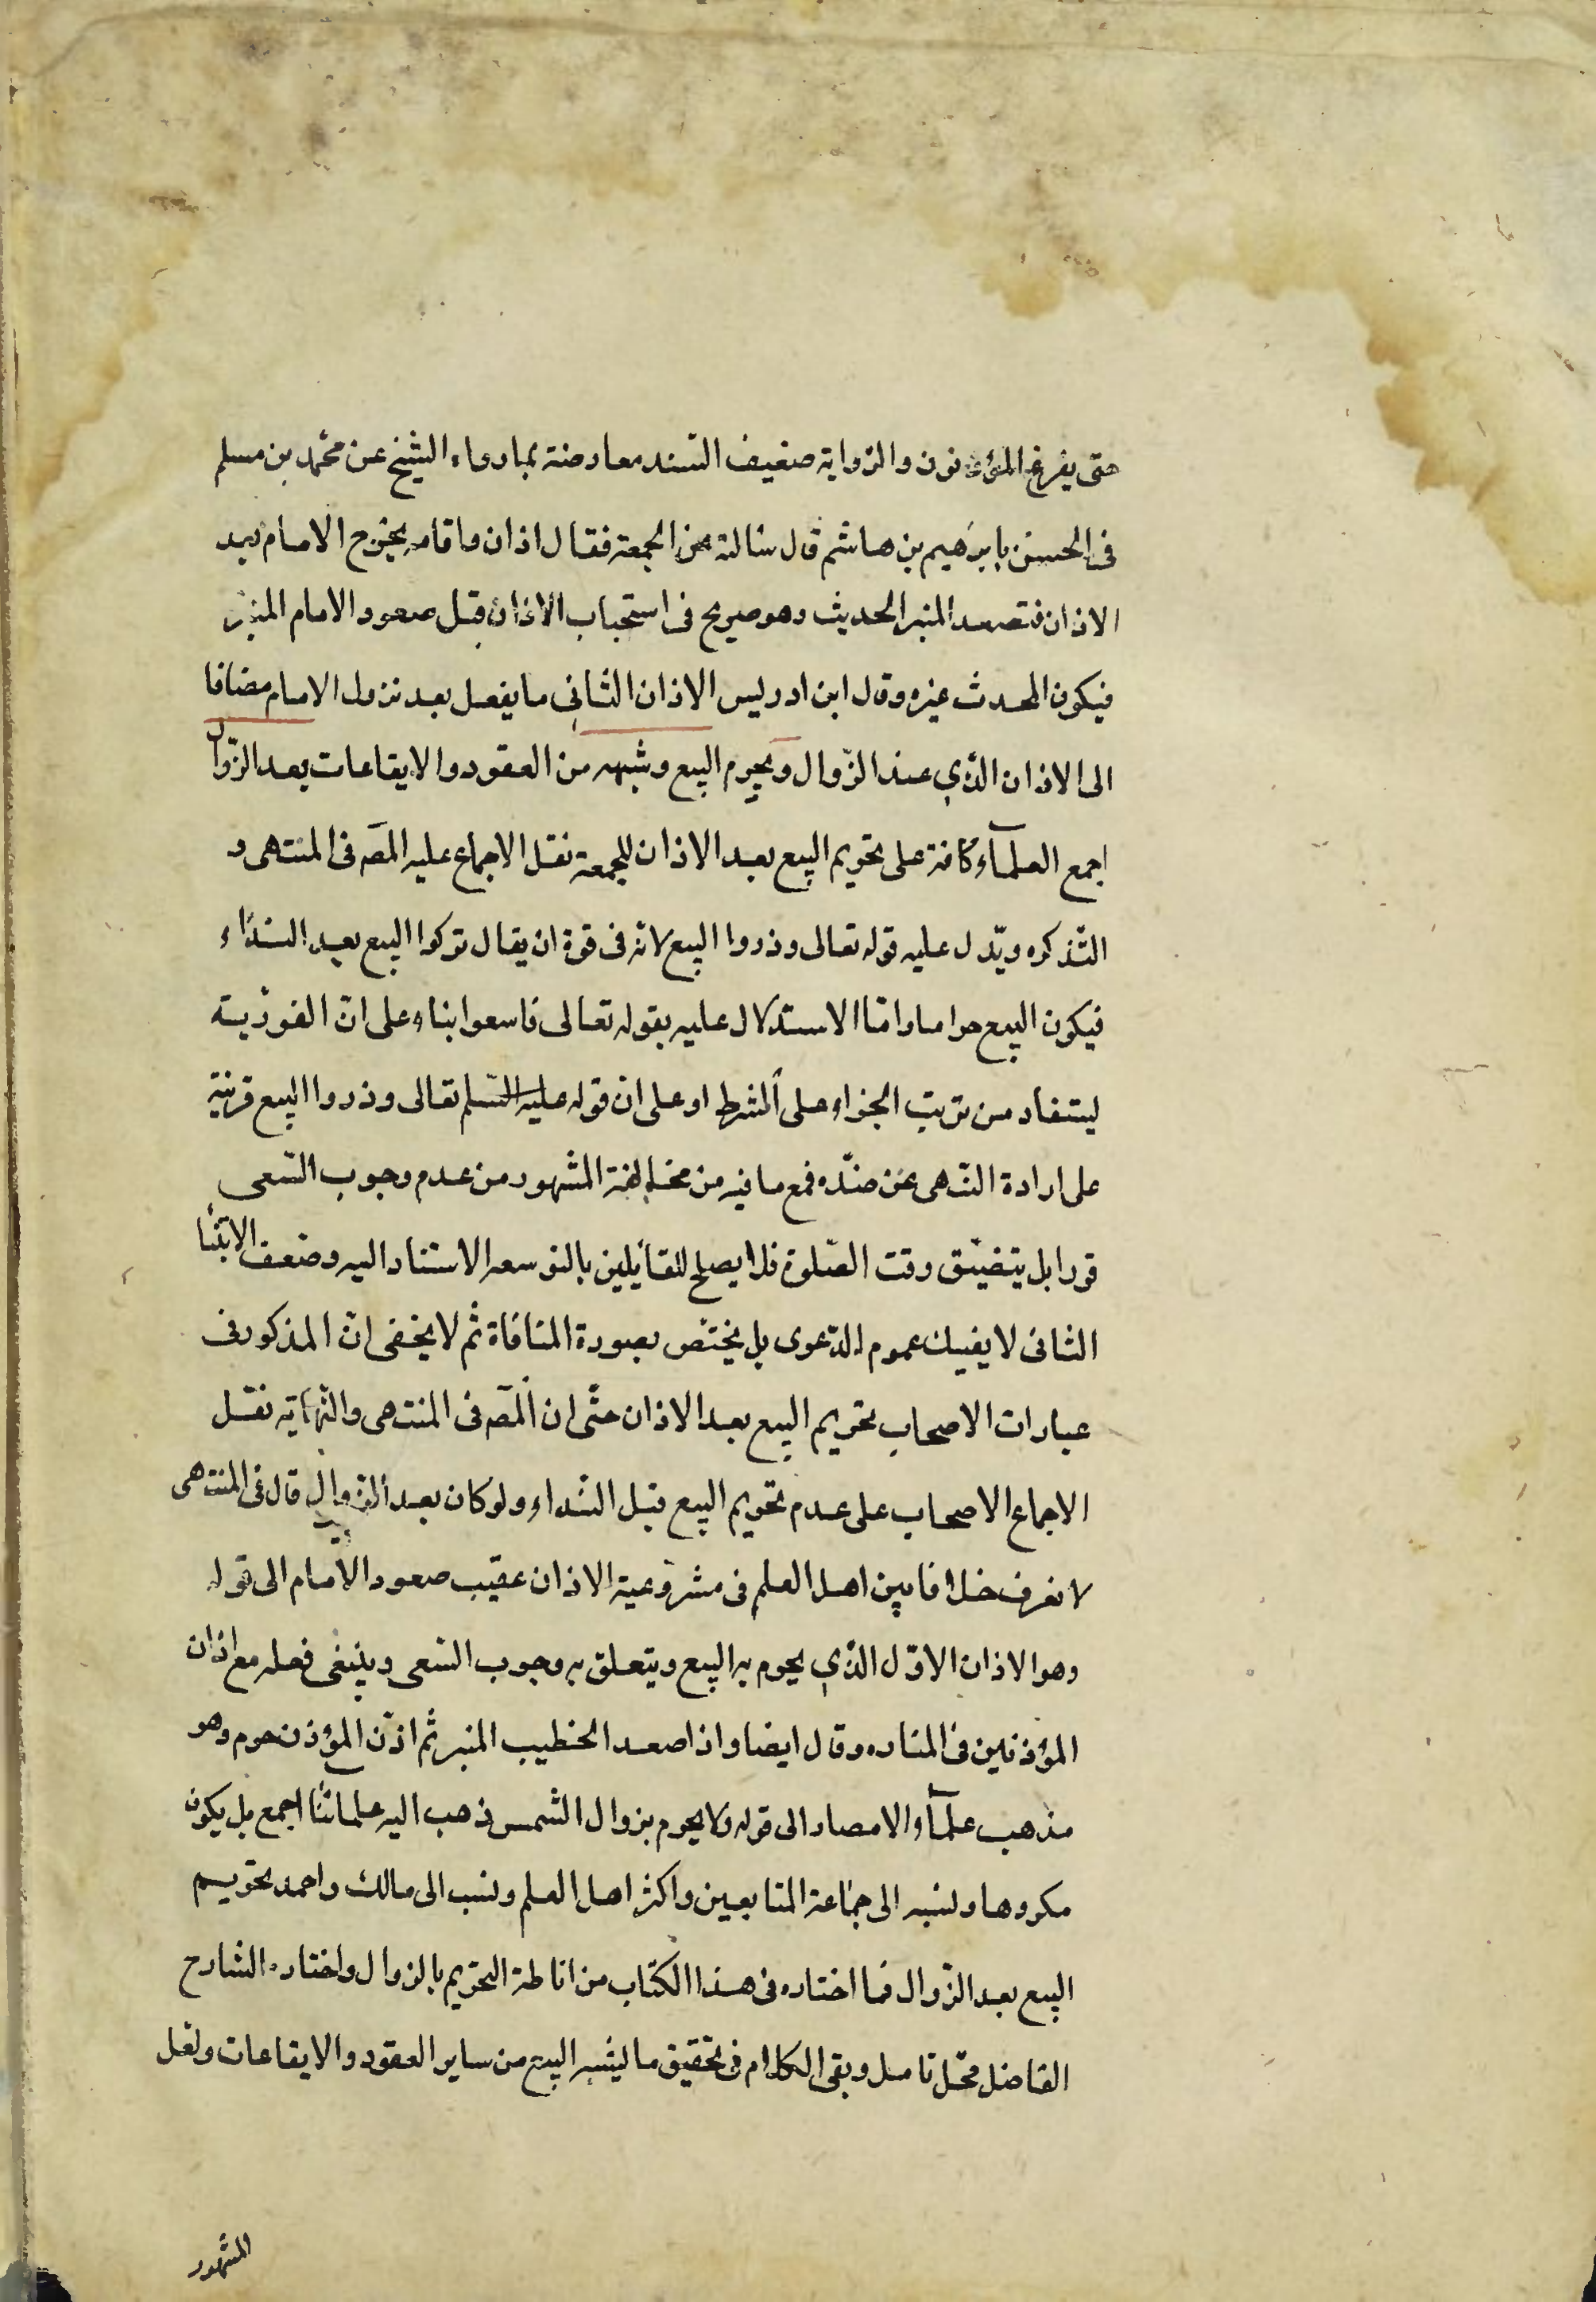 حتى يفرغ المؤذنون والرواية ضعيف السند معارضة بمارواه الشيخ عن محمد بن مسلم
فى الحسن بابرهيم بن هاشم قال سالته عن الجمعة فقال اذان واقامه يخرج الامام بعد
الاذان فتصعد المنبر الحديث وهو صريح فى استحباب الاذان قبل صعود الامام المنبر
فيكون المحدث غيره وقال ابن ادريس الاذان الثانى ما يفعل بعد نزول الامام مضافا
الى الاذان الذي عند الزوال ويحرم البيع وشبهه من العقود والايقاعات بعد الزوال
اجمع العلمآء كافة على تحريم البيع بعد الاذان للجمعة نقل الاجماع عليه المصه فى المنتهى و
التذكره ويدل عليه قوله تعالى وذروا البيع لانه فى قوة ان يقال تركوا البيع بعد النداء
فيكون البيع حراما واما الاستدلال عليه بقوله تعالى فاسعوا بناء على ان الفورية
ليتفاد من ترتب الجزاء على الشرط او على ان قوله عليه السلم تعالى وذروا البيع قرينة
على ارادة النهى عن ضده فمع ما فيه من مخالفة المشهور من عدم وجوب السعى
فورا بل يتضيق وقت الصلوة فلا يصلح للقائلين بالتوسعه الاستناد اليه وضعف الابتنا
الثانى لا يفيك عموم الدعوى بل يختص بصورة المنافاة ثم لا يخفى ان المذكور فى
عبارات الاصحاب تحريم البيع بعد الاذان حتى ان المصه فى المنتهى والنهاية نقل
الاجماع الاصحاب على عدم تحريم البيع قبل النداء ولو كان بعد الزوال قال فى المنتهى
لا نعرف خلافا بين اهل العلم فى مشروعية الاذان عقيب صعود الامام الى قوله
وهو الاذان الاول الذي يحرم به البيع ويتعلق به وجوب السعى وينبغى فعله مع اذان
المؤذنين فى المناره وقال ايضا واذا صعد الخطيب المنبر ثم اذن المؤذن حرم وهو
مذهب علمآء الامصار الى قوله ولا يحرم بزوال الشمس ذهب اليه علمائنا اجمع بل يكون
مكروها ونسبه الى جماعة المتابعين واكثر اهل العلم ونسب الى مالك واحمد تحريم
البيع بعد الزوال فما اختاره فى هذا الكتاب من اناطة التحريم بالزوال واختاره الشارح
الفاضل محل تامل وبقى الكلام فى تحقيق ما يشبه البيع من ساير العقود والايقاعات ونقل
المشهور